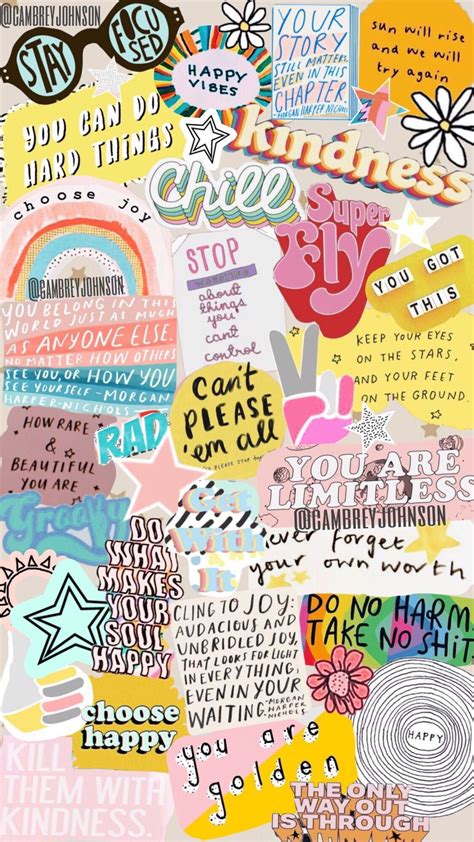 @CAMBREYJOHNSON
STAY
FOCUSED
HAPPY
VIBES
YOUR
STORY
STILL MATTERS,
EVEN IN THIS
CHAPTER.
-MORGAN HARPER NICHOLS
sun will rise
and we will
try again
YOU CAN DO
HARD THINGS
kindness
choose joy
Chill
Super
Fly
STOP
about
things
you
can't
control
YOU GOT
THIS
@CAMBREYJOHNSON
YOU BELONG IN THIS
WORLD JUST AS MUCH
AS ANYONE ELSE.
NO MATTER HOW OTHERS
SEE YOU, OR HOW YOU
SEE YOURSELF-MORGAN
HARPER-NICHOLS
KEEP YOUR EYES
ON THE STARS,
AND YOUR FEET
ON THE GROUND.
can't
PLEASE
'em all
RAD
HOW RARE &
BEAUTIFUL
YOU ARE
YOU ARE
LIMITLESS
@CAMBREYJOHNSON
Groovy
Get
With
it
never forget
your own worth
DO
WHAT
MAKES
YOUR
SOUL
HAPPY
CLING TO JOY:
AUDACIOUS AND
UNBRIDLED JOY,
THAT LOOKS FOR LIGHT
IN EVERYTHING,
EVEN IN YOUR
WAITING.-MORGAN
HARPER
NICHOLS
DO NO HARM.
TAKE NO SHIT.
choose
happy
HAPPY
you are
golden
KILL
THEM WITH
KINDNESS.
THE ONLY
WAY OUT
IS THROUGH